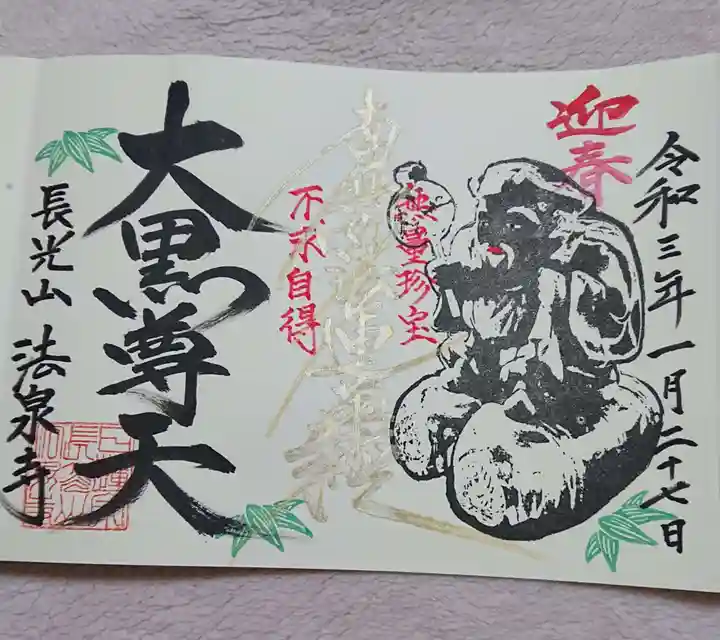 迎春
令和三年一月二十七日
無量珍宝
不求自得
南無妙法蓮華経
大黒尊天
長光山 法泉寺